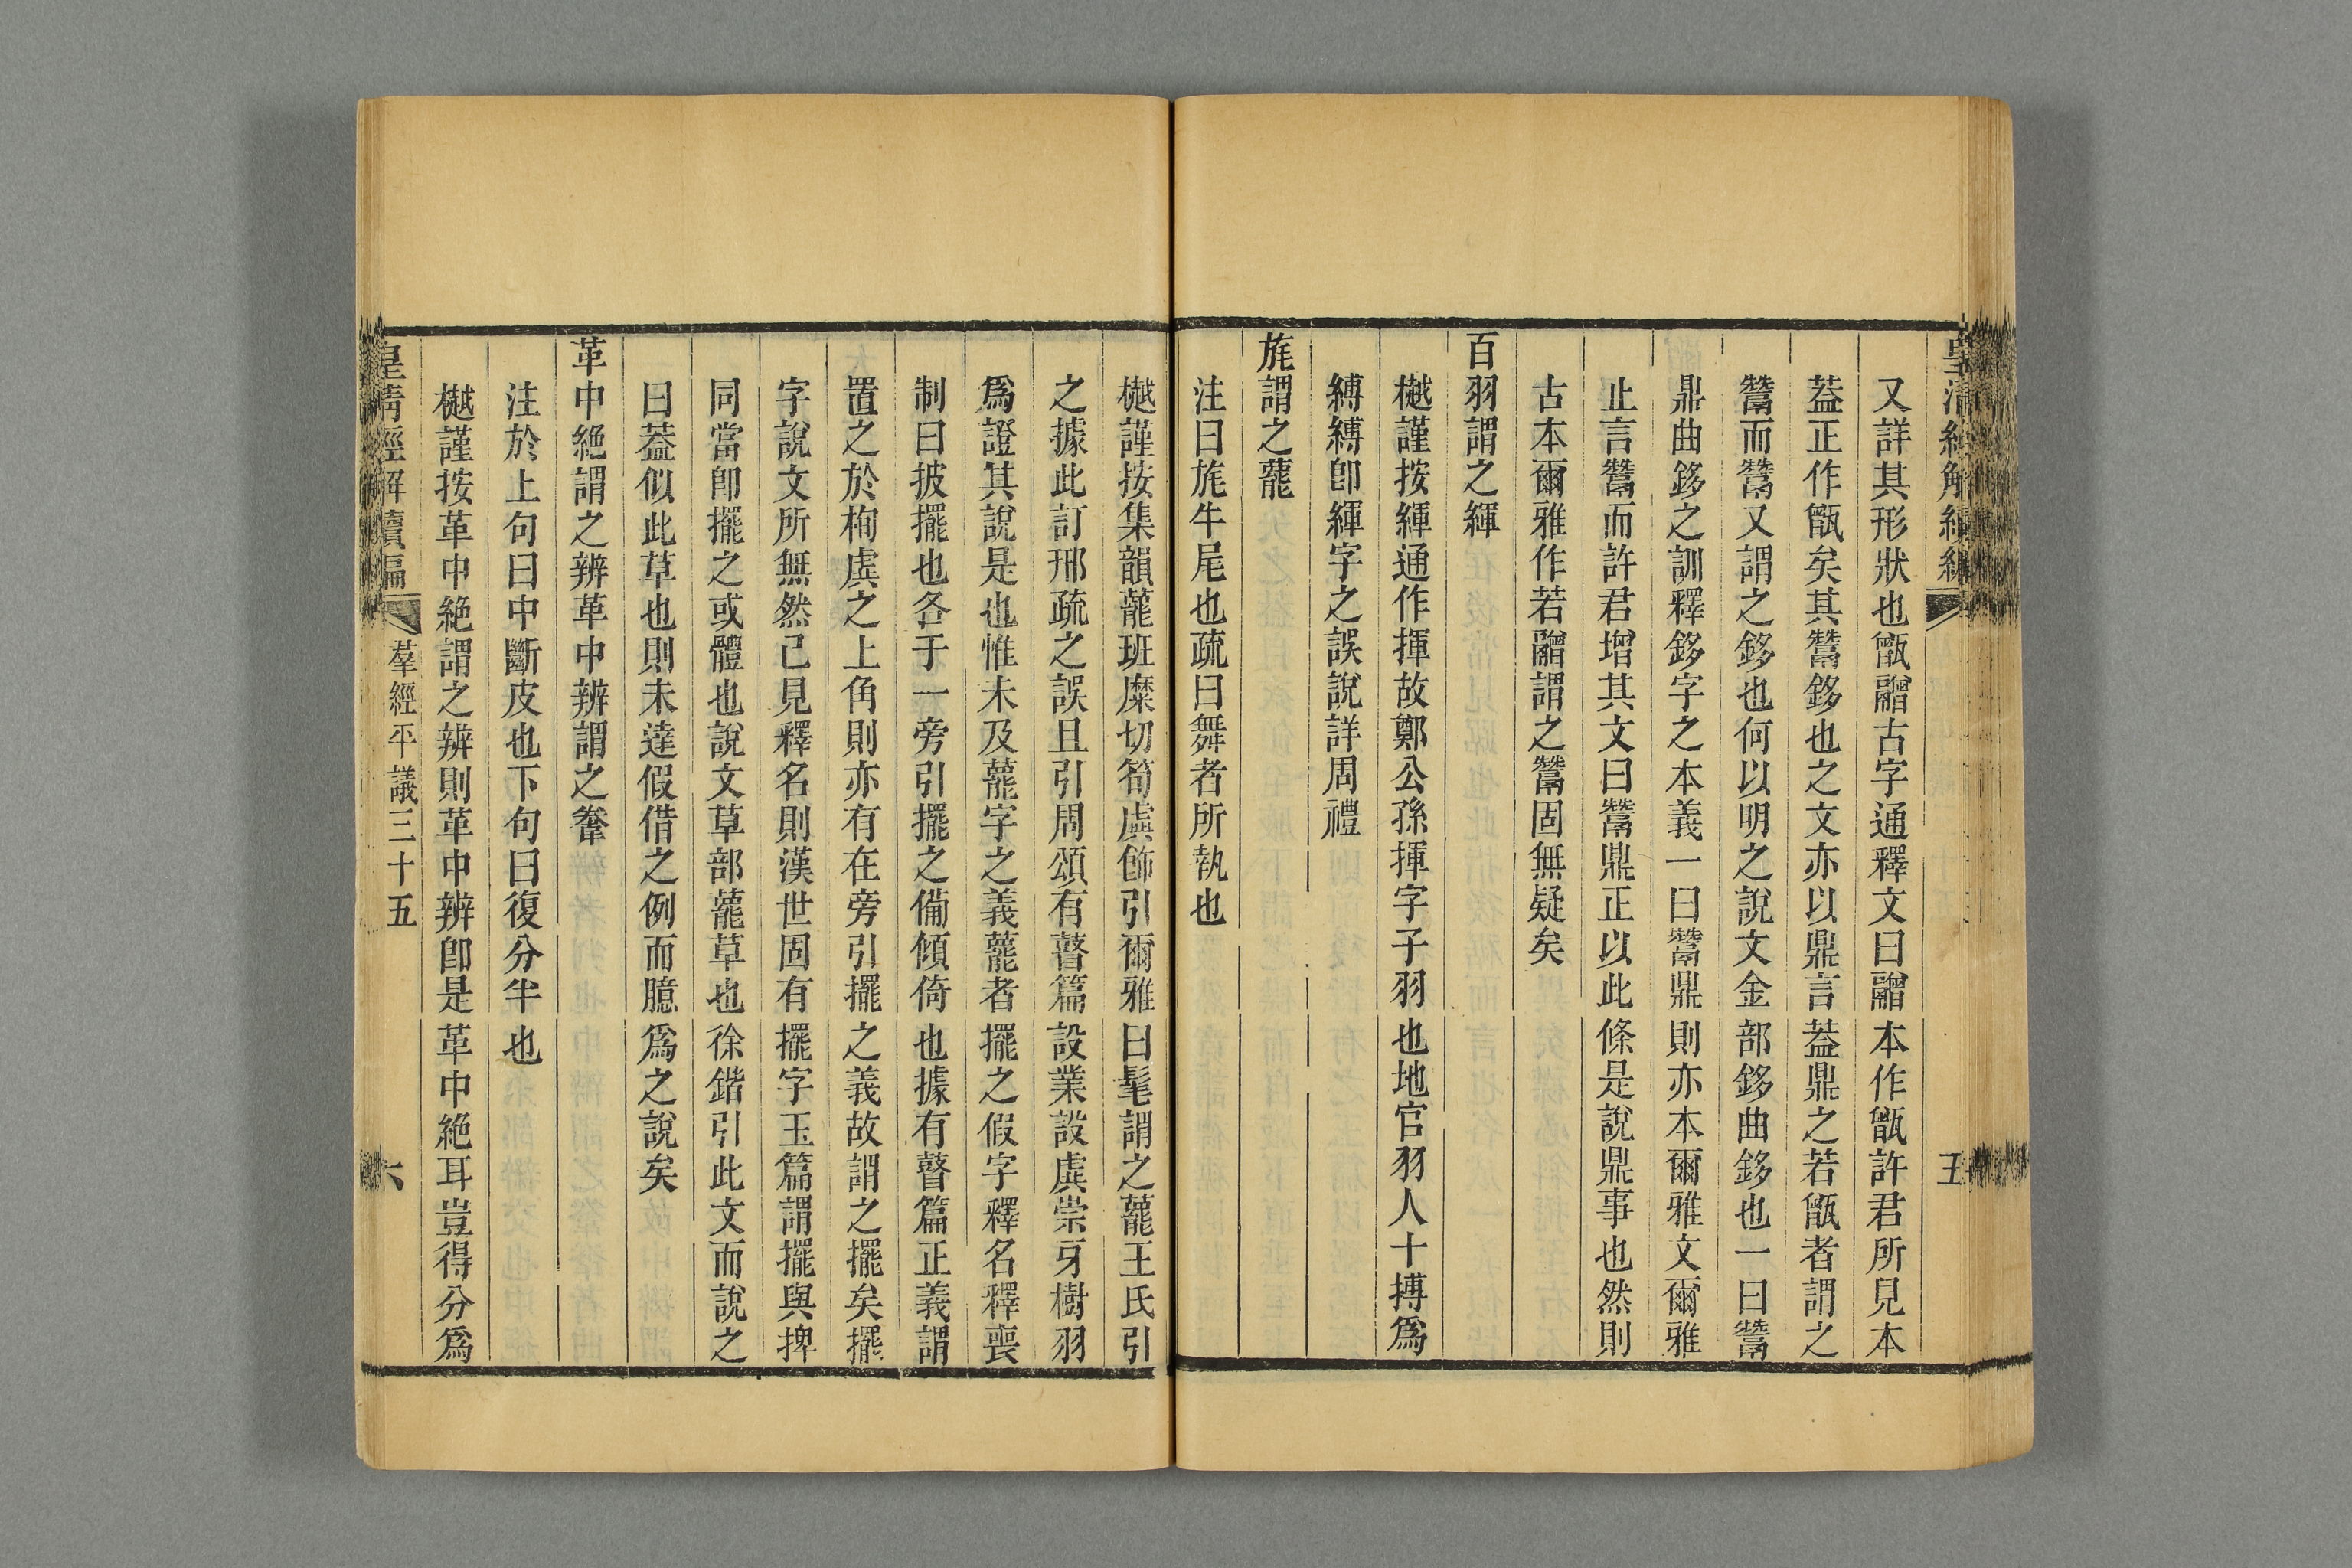 皇清經解續編
五
又詳其形狀也甑䰝古字通釋文曰䰝本作甑許君所見本
葢正作甑矣其鬵鉹也之文亦以鼎言葢鼎之若甑者謂之
鬵而鬵又謂之鉹也何以明之說文金部鉹曲鉹也一曰鬵
鼎曲鉹之訓釋鉹字之本義一曰鬵鼎則亦本爾雅文爾雅
止言鬵而許君增其文曰鬵鼎正以此條是說鼎事也然則
古本爾雅作若䰝謂之鬵固無疑矣
百羽謂之緷
樾謹按緷通作揮故鄭公孫揮字子羽也地官羽人十搏爲
縛縛卽緷字之誤說詳周禮
旄謂之藣
注曰旄牛尾也疏曰舞者所執也
樾謹按集韻藣班糜切筍虡飾引爾雅曰髦謂之藣王氏引
之據此訂邢疏之誤且引周頌有瞽篇設業設虡崇牙樹羽
爲證其說是也惟未及藣字之義藣者擺之假字釋名釋喪
制曰披擺也各于一旁引擺之備傾倚也據有瞽篇正義謂
置之於栒虡之上角則亦有在旁引擺之義故謂之擺矣擺
字說文所無然已見釋名則漢世固有擺字玉篇謂擺與捭
同當卽擺之或體也說文草部藣草也徐鍇引此文而說之
曰葢似此草也則未達假借之例而臆爲之說矣
革中絶謂之辨革中辨謂之韏
注於上句曰中斷皮也下句曰復分半也
樾謹按革中絶謂之辨則革中辨卽是革中絶耳豈得分爲
皇清經解續編
羣經平議三十五
六